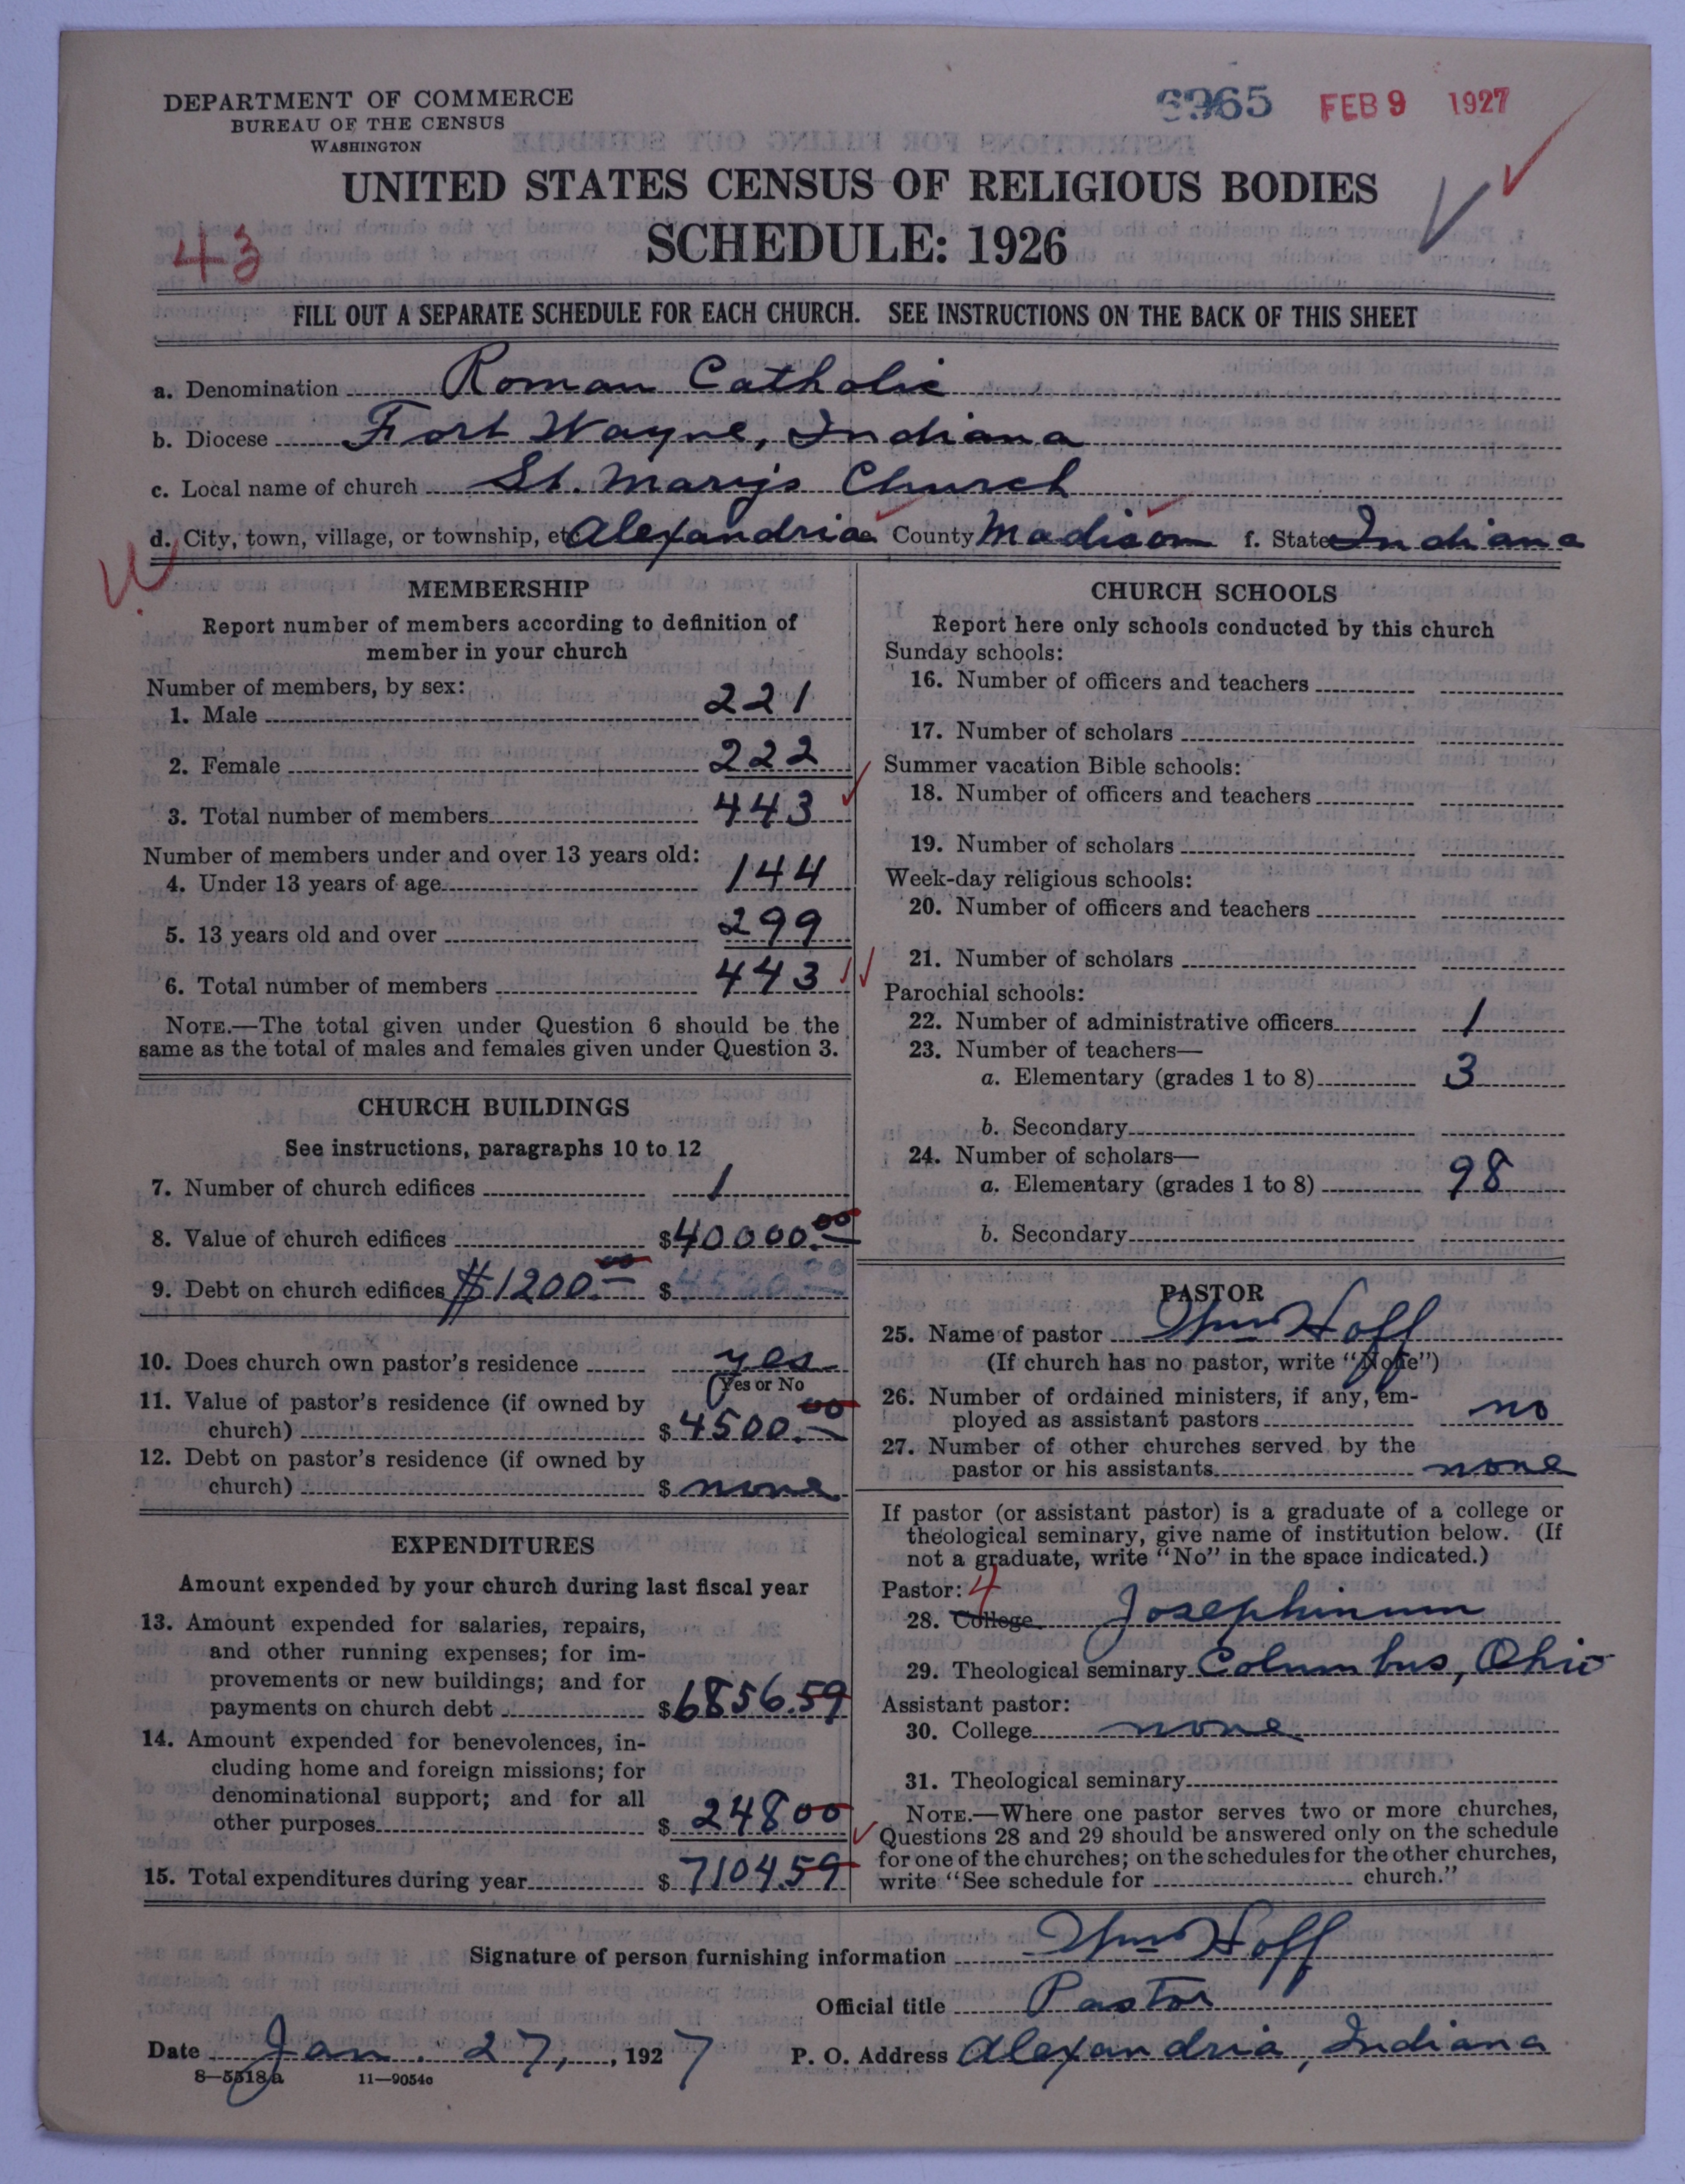 DEPARTMENT OF COMMERCE
BUREAU OF THE CENSUS
WASHINGTON
FEB 9 1927
UNITED STATES CENSUS OF RELIGIOUS BODIES
SCHEDULE: 1926
43
FILL OUT A SEPARATE SCHEDULE FOR EACH CHURCH. SEE INSTRUCTIONS ON THE BACK OF THIS SHEET
a. Denomination Roman Catholic
b. Diocese Fort Wayne, Indiana
c. Local name of church St. Mary's Church
d. City, town, village, or township, etc Alexandria e. County Madison f. State Indiana
MEMBERSHIP
Report number of members according to definition of
member in your church
Number of members, by sex:
1. Male 221
2. Female 222
3. Total number of members 443
Number of members under and over 13 years old:
4. Under 13 years of age 144
5. 13 years old and over 299
6. Total number of members 443
NOTE.—The total given under Question 6 should be the
same as the total of males and females given under Question 3.
CHURCH BUILDINGS
See instructions, paragraphs 10 to 12
7. Number of church edifices 1
8. Value of church edifices $40000.00
9. Debt on church edifices $1200.00 $4500.00
10. Does church own pastor's residence yes
(Yes or No
11. Value of pastor's residence (if owned by
church) $4500.00
12. Debt on pastor's residence (if owned by
church) $ none
EXPENDITURES
Amount expended by your church during last fiscal year
13. Amount expended for salaries, repairs,
and other running expenses; for im-
provements or new buildings; and for
payments on church debt $6856.59
14. Amount expended for benevolences, in-
cluding home and foreign missions; for
denominational support; and for all
other purposes $ 248 00
15. Total expenditures during year $ 7104.59
CHURCH SCHOOLS
Report here only schools conducted by this church
Sunday schools:
16. Number of officers and teachers
17. Number of scholars
Summer vacation Bible schools:
18. Number of officers and teachers
19. Number of scholars
Week-day religious schools:
20. Number of officers and teachers
21. Number of scholars
Parochial schools:
22. Number of administrative officers 1
23. Number of teachers—
a. Elementary (grades 1 to 8) 3
b. Secondary
24. Number of scholars—
a. Elementary (grades 1 to 8) 98
b. Secondary
PASTOR
25. Name of pastor Wm Hoff
(If church has no pastor, write "None")
26. Number of ordained ministers, if any, em-
ployed as assistant pastors no
27. Number of other churches served by the
pastor or his assistants none
If pastor (or assistant pastor) is a graduate of a college or
theological seminary, give name of institution below. (If
not a graduate, write "No" in the space indicated.)
Pastor: 4
28. College Josephinum
29. Theological seminary Columbus, Ohio
Assistant pastor:
30. College none
31. Theological seminary
NOTE.—Where one pastor serves two or more churches,
Questions 28 and 29 should be answered only on the schedule
for one of the churches; on the schedules for the other churches,
write "See schedule for church."
Signature of person furnishing information Wm Hoff
Official title Pastor
Date Jan. 27, 1927 P. O. Address Alexandria, Indiana
8—5518a 11—9054c